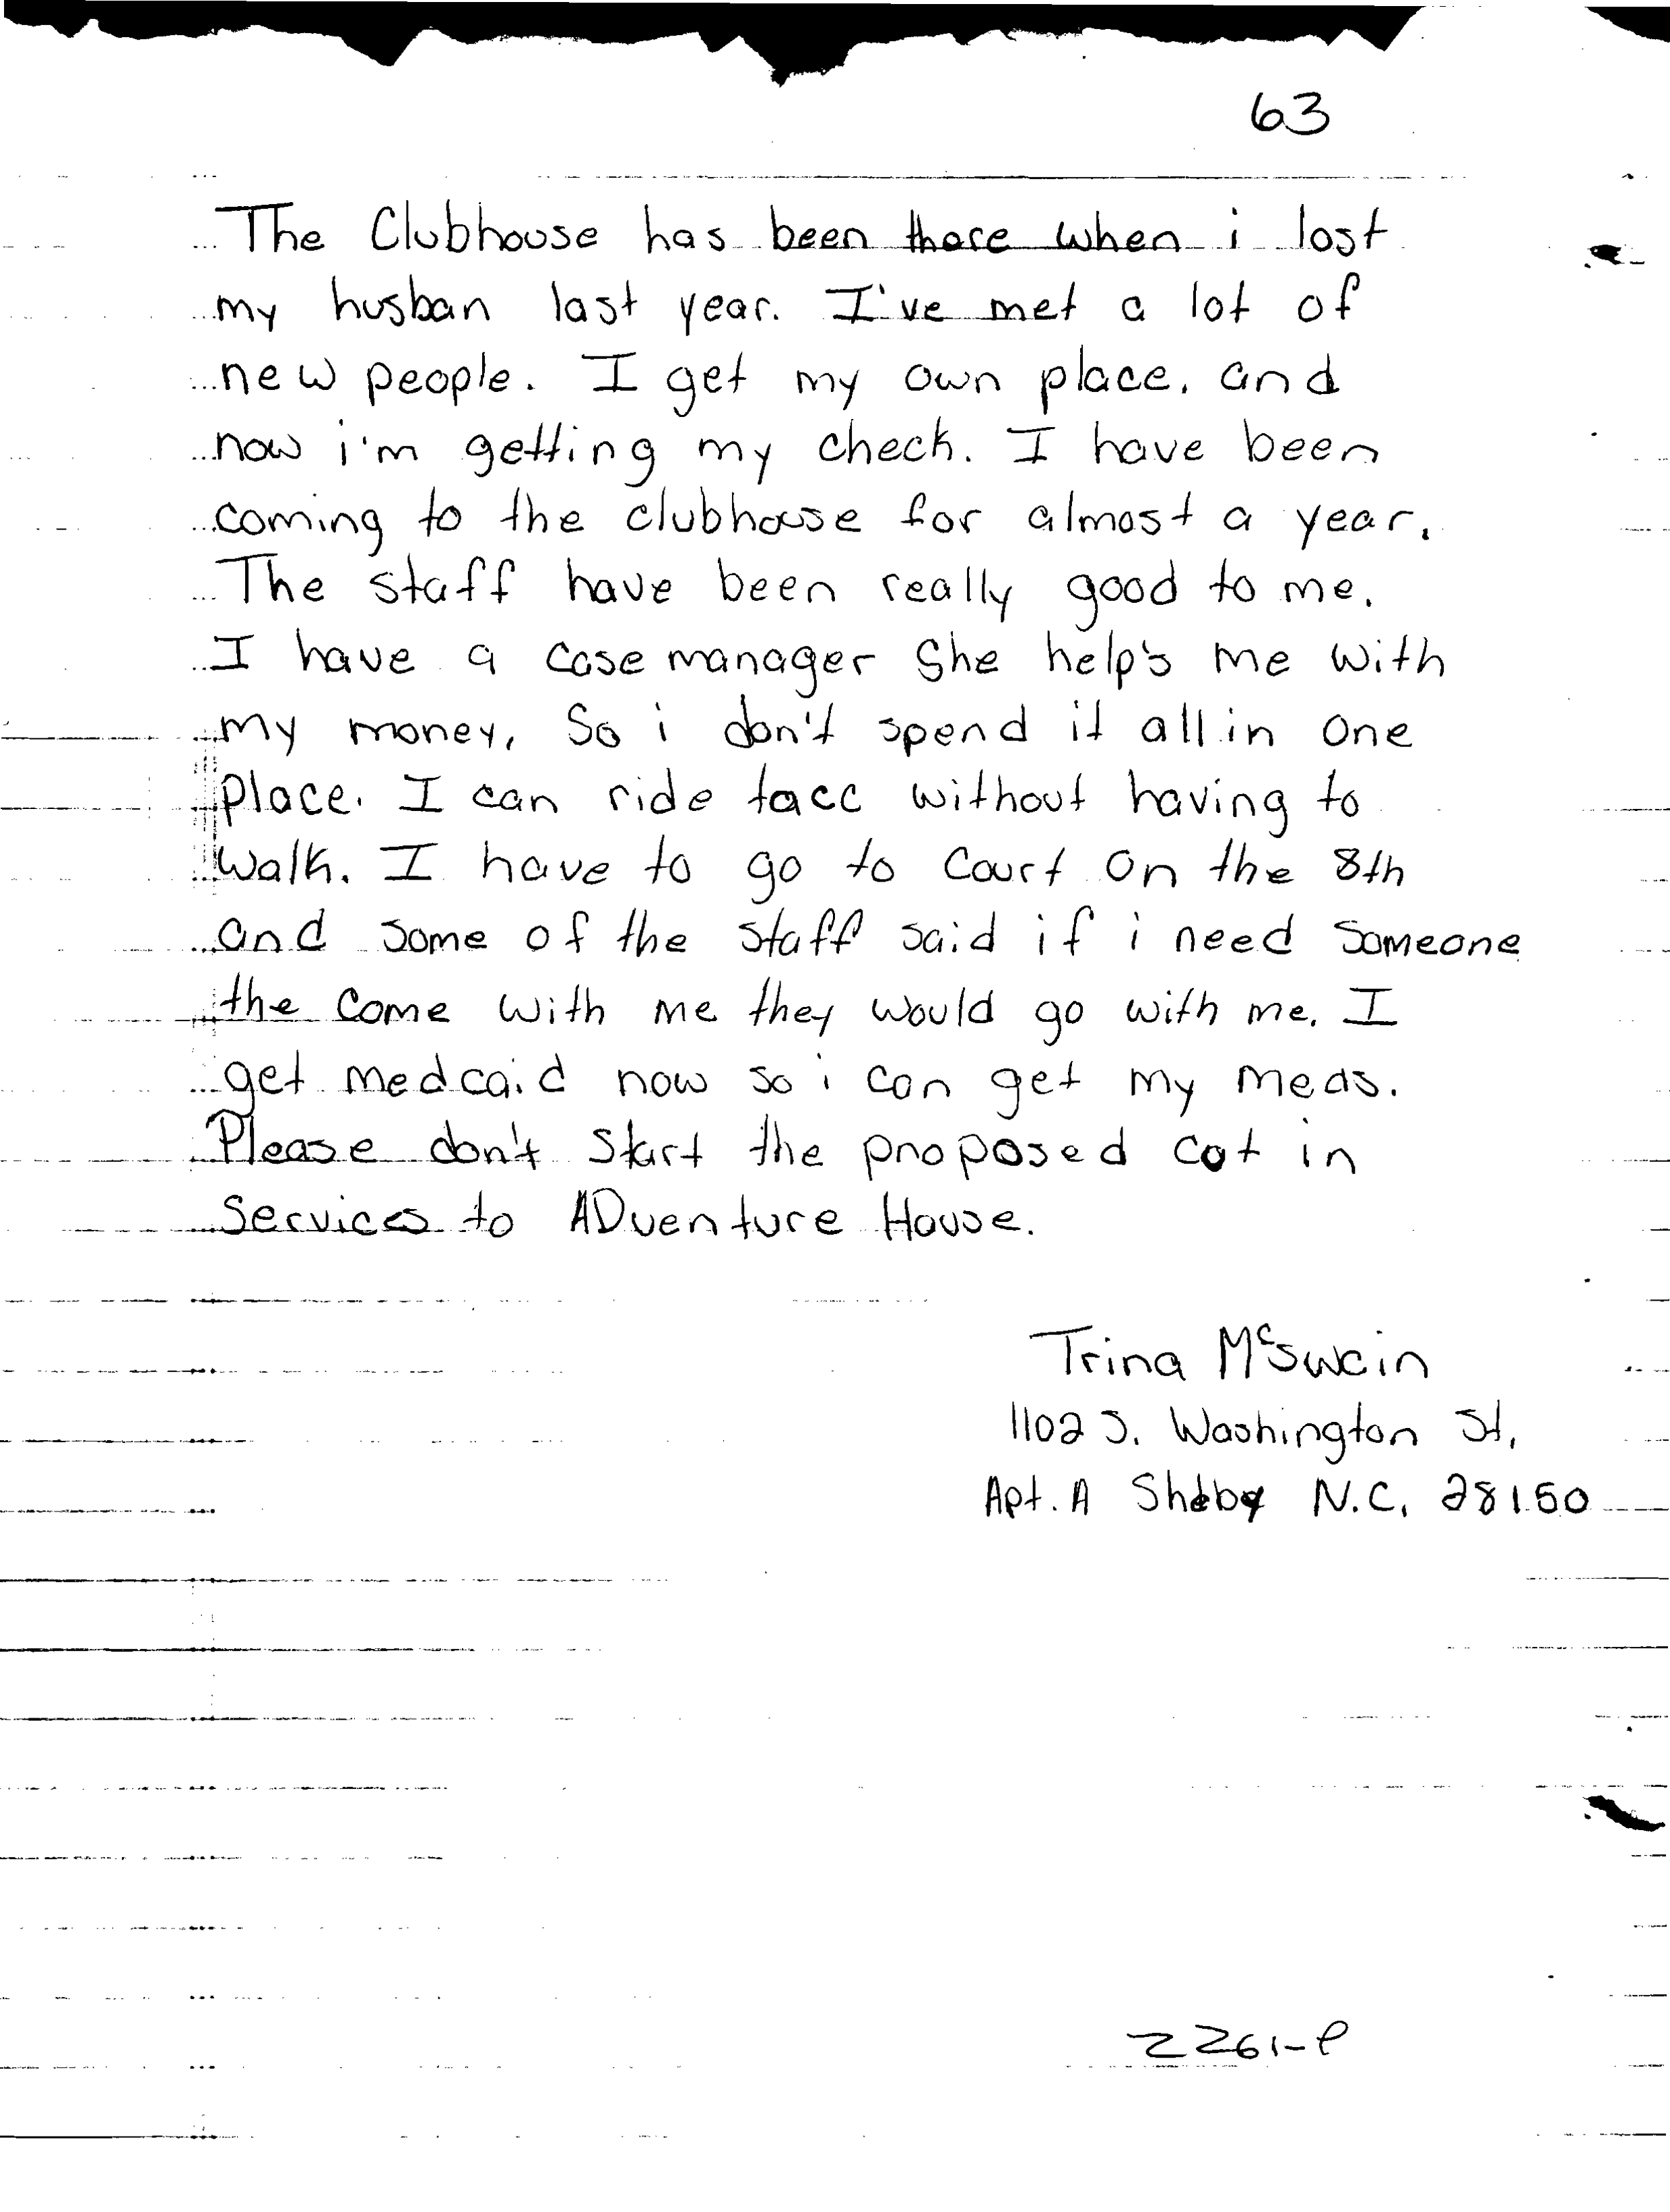 63
The Clubhouse has been there when i lost
my husban last year. I've met a lot of
new people. I get my own place. and
now i'm getting my check. I have been
coming to the clubhouse for almost a year.
The staff have been really good to me.
I have a case manager She help's me with
my money, So i don't spend it all in one
place. I can ride tacc without having to
walk. I have to go to Court on the 8th
and some of the staff said if i need someone
the come with me they would go with me. I
get medcaid now so i can get my meds.
Please don't start the proposed cut in
Services to ADventure House.
Trina McSwain
1102 S. Washington St,
Apt. A Shelby N.C, 28150
2261-P